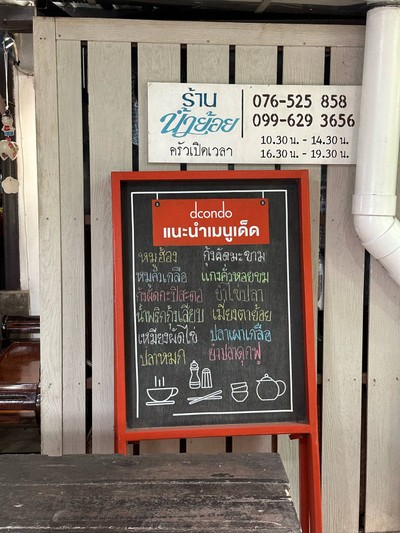 ร้าน
น้ำย้อย
ครัวเปิดเวลา
076-525 858
099-629 3656
10.30 น. - 14.30 น.
16.30 น. - 19.30 น.
dcondo
แนะนำเมนูเด็ด
หมูฮ้อง กุ้งผัดมะขาม
หมูคั่วเกลือ แกงคั่วหอยขม
กุ้งผัดกะปิสะตอ ยำไข่ปลา
น้ำพริกกุ้งเสียบ เมี่ยงตาย้อย
เหมียงผัดไข่ ปลาเผาเกลือ
ปลาหมก ยำปลาดุกฟู